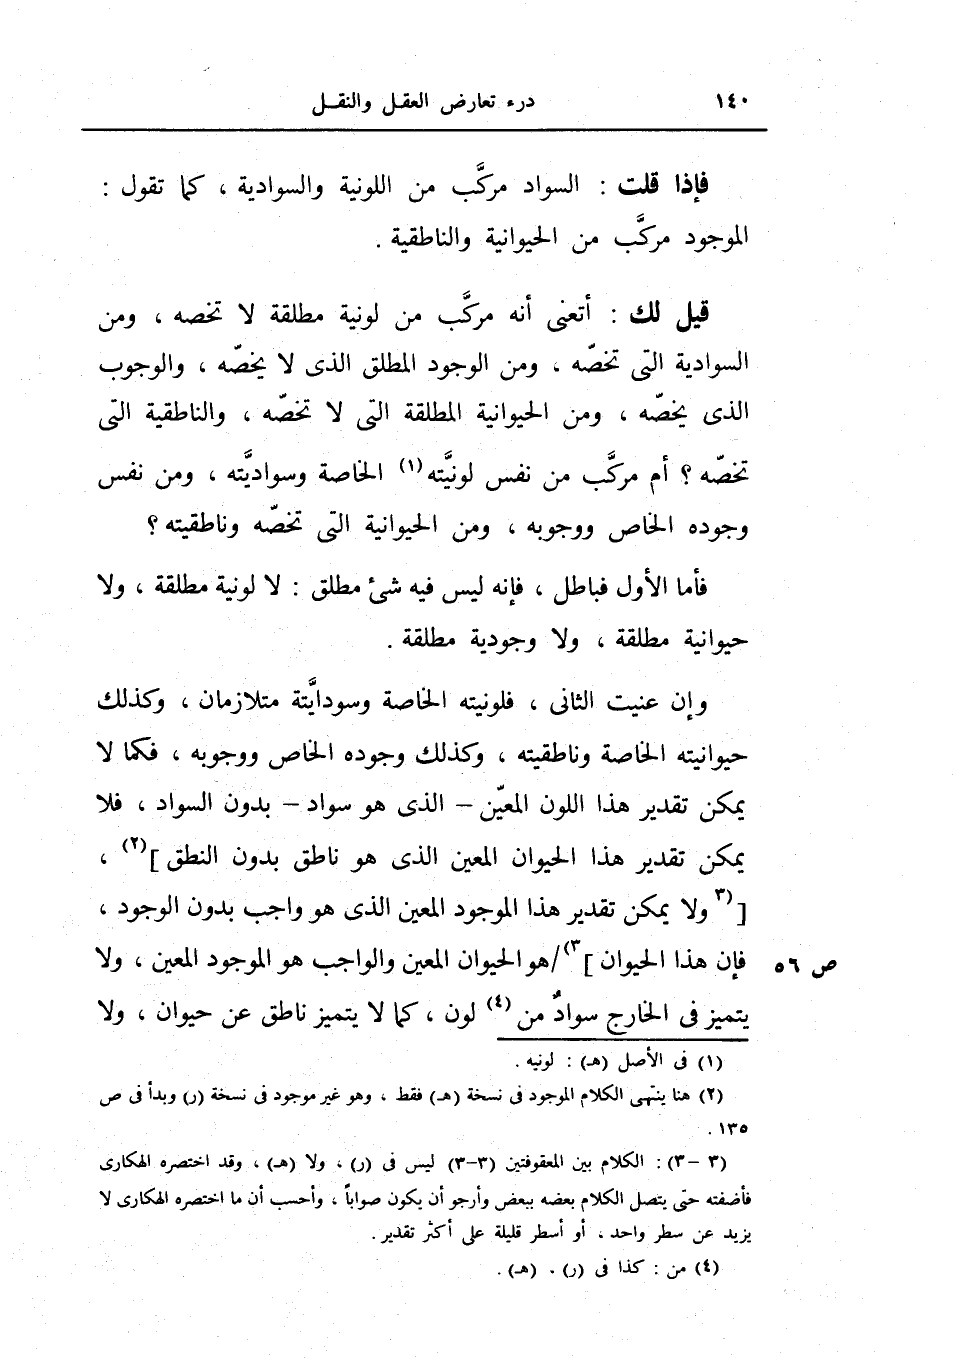 ١٤٠ درء تعارض العقل والنقل
فإذا قلت : السواد مركَّب من اللونية والسوادية ، كما تقول :
الموجود مركَّب من الحيوانية والناطقية .
قيل لك : أتعنى أنه مركَّب من لونية مطلقة لا تخصه ، ومن
السوادية التى تخصّه ، ومن الوجود المطلق الذى لا يخصّه ، والوجوب
الذى يخصّه ، ومن الحيوانية المطلقة التى لا تخصّه ، والناطقية التى
تخصّه ؟ أم مركَّب من نفس لونيَّته(١) الخاصة وسواديَّته ، ومن نفس
وجوده الخاص ووجوبه ، ومن الحيوانية التى تخصّه وناطقيته ؟
فأما الأول فباطل ، فإنه ليس فيه شئ مطلق : لا لونية مطلقة ، ولا
حيوانية مطلقة ، ولا وجودية مطلقة .
وإن عنيت الثانى ، فلونيته الخاصة وسودايَّتة متلازمان ، وكذلك
حيوانيته الخاصة وناطقيته ، وكذلك وجوده الخاص ووجوبه ، فكما لا
يمكن تقدير هذا اللون المعيّن – الذى هو سواد – بدون السواد ، فلا
يمكن تقدير هذا الحيوان المعين الذى هو ناطق بدون النطق ](٢) ،
[(٣ ولا يمكن تقدير هذا الموجود المعين الذى هو واجب بدون الوجود ،
فإن هذا الحيوان ]٣)/هو الحيوان المعين والواجب هو الموجود المعين ، ولا
ص ٥٦
يتميز فى الخارج سوادٌ من (٤) لون ، كما لا يتميز ناطق عن حيوان ، ولا
(١) فى الأصل (هـ) : لونيه .
(٢) هنا ينتهى الكلام الموجود فى نسخة (هـ) فقط ، وهو غير موجود فى نسخة (ر) وبدأ فى ص
١٣٥ .
(٣ –٣) : الكلام بين المعقوفتين (٣–٣) ليس فى (ر) ، ولا (هـ) ، وقد اختصره الهكارى
فأضفته حتى يتصل الكلام بعضه ببعض وأرجو أن يكون صواباً ، وأحسب أن ما اختصره الهكارى لا
يزيد عن سطر واحد ، أو أسطر قليلة على أكثر تقدير .
(٤) من : كذا فى (ر) ، (هـ) .